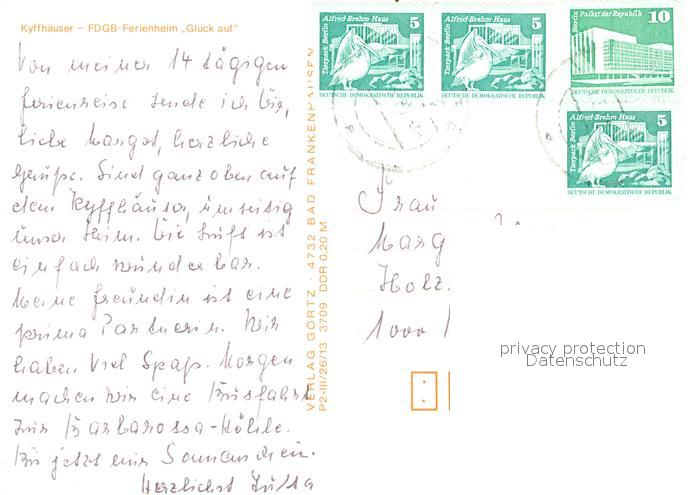 Kyffhäuser – FDGB-Ferienheim „Glück auf“
Von meiner 14 tägigen
Ferienreise sende ich Dir,
liebe Margot, herzliche
Grüße. Sind ganz oben auf
dem Kyffhäuser, umseitig
unser Heim. Die Luft ist
einfach wunderbar.
Meine Freundin ist eine
prima Partnerin. Wir
haben viel Spaß. Morgen
machen wir eine Busfahrt
zur Barbarossa-Höhle.
Bis jetzt nur Sonnenschein.
Herzlichst Jutta
VERLAG GÖRTZ · 4732 BAD FRANKENHAUSEN
P2-III/26/13 3709 DDR 0,20 M
Alfred-Brehm-Haus 5
Tierpark Berlin
DEUTSCHE DEMOKRATISCHE REPUBLIK
Alfred-Brehm-Haus 5
Tierpark Berlin
DEUTSCHE DEMOKRATISCHE REPUBLIK
Palast der Republik 10
Berlin
DEUTSCHE DEMOKRATISCHE REPUBLIK
Alfred-Brehm-Haus 5
Tierpark Berlin
DEUTSCHE DEMOKRATISCHE REPUBLIK
Frau
Marg
Holz.
1000 /
privacy protection
Datenschutz